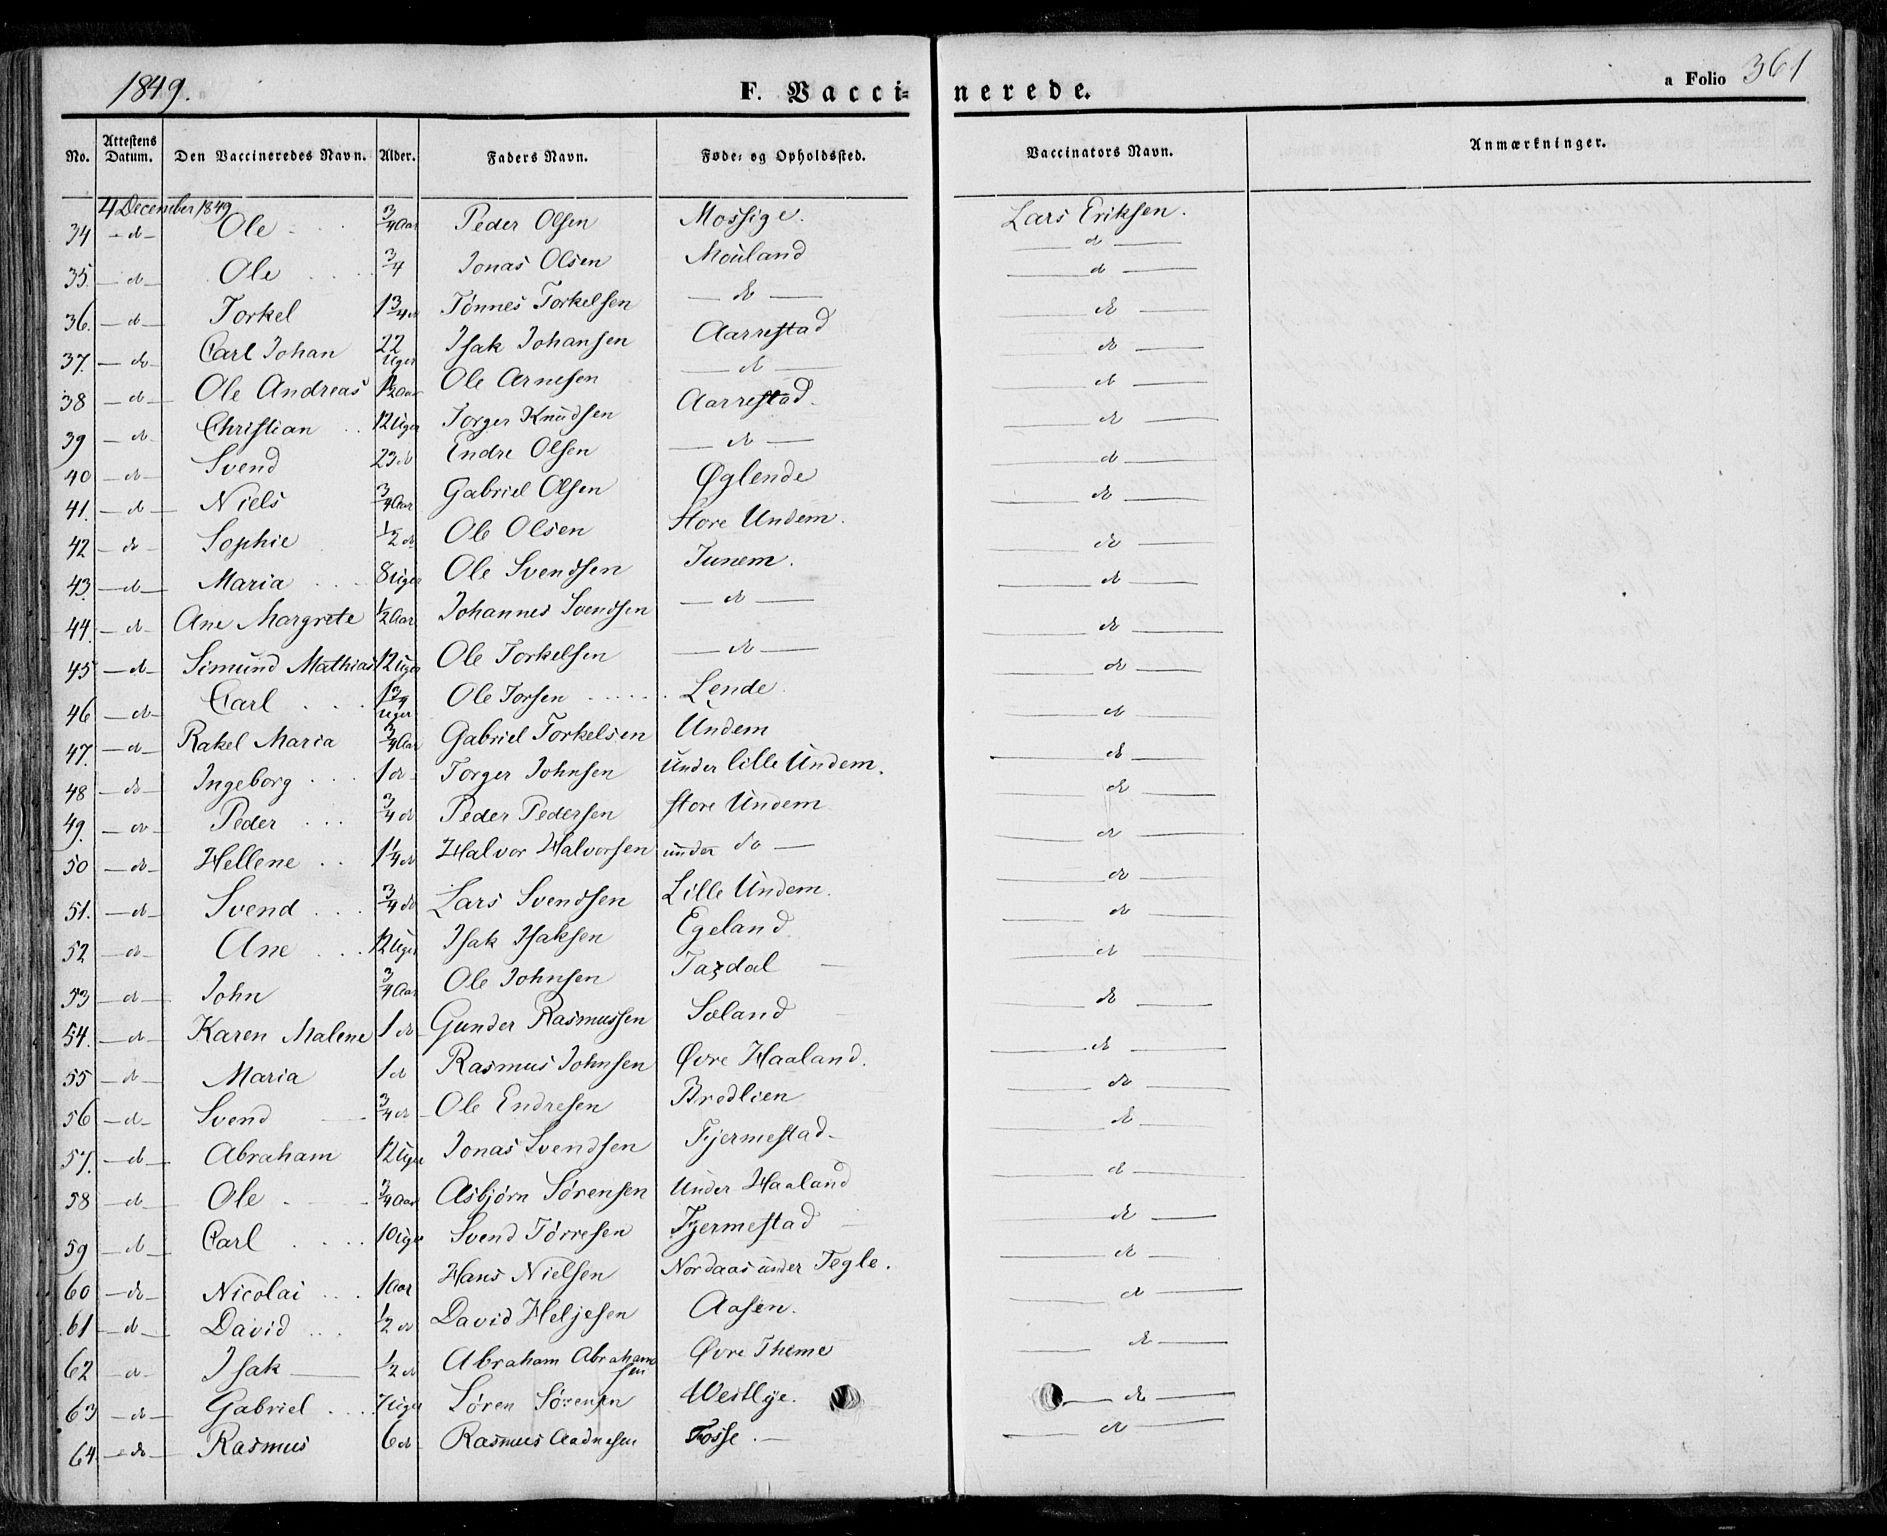 1849. F. Vacci= nerede. a Folio 361
No. Attestens Datum. Den Vaccineredes Navn. Alder. Faders Navn. Føde= og Opholdssted. Vaccinators Navn. Anmærkninger.
4 December 1849
34 - do - Ole 3/4 Aar Peder Olsen Mossige. Lars Eriksen.
35. - do - Ole 3/4 Jonas Olsen Mouland do
36. - do - Torkel 1 3/4 do Tønnes Torkelsen - do - do
37. - do - Carl Johan 22 Uger Isak Johansen Aarrestad do
38 - do - Ole Andreas 1 1/2 Aar Ole Arnesen - do - do
39 - do - Christian 12 Uger Torger Knudsen Aarrestad. do
40 - do - Svend 23 do Endre Olsen - do - do
41. - do - Niels 3/4 Aar Gabriel Olsen Øglende do
42 - do - Sophie 1/2 do Ole Olsen Store Undem. do
43. - do - Maria 8 Uger Ole Svendsen Tunem. do
44. - do - Ane Margrete 1/2 Aar Johannes Svendsen - do - do
45 - do - Simund Mathias 12 Uger Ole Torkelsen - do - do
46 - do - Carl 1 3/4 Uger Ole Torsen Lende. do
47. - do - Rakel Maria 3/4 Aar Gabriel Torkelsen Undem do
48 - do - Ingeborg 1 do Torger Johnsen under lille Undem. do
49. - do - Peder 3/4 do Peder Pedersen store Undem do
50 - do - Hellene 1 1/4 do Halvor Halvorsen under do - do
51. - do - Svend 3/4 do Lars Svendsen Lille Undem. do
52 - do - Ane 12 Uger Isak Isaksen Egeland do
53 - do - John 3/4 Aar Ole Johnsen Taxdal do
54. - do - Karen Malene 1 do Gunder Rasmussen Soland do
55 - do - Maria 1 do Rasmus Johnsen Øvre Haaland. do
56 - do - Svend 3/4 do Ole Endresen Bredlien do
57. - do - Abraham 12 Uger Jonas Svendsen Fjermestad do
58 - do - Ole 3/4 Aar Asbjørn Sørensen Under Haaland do
59 - do - Carl 10 Uger Svend Tørresen Fjermestad do
60 - do - Nicolai 1 Aar Hans Nielsen Nordaas under Tegle. do
61 - do - David 1/2 do David Heljesen Aasen. do
62 - do - Isak 1/2 do Abraham Abrahamsen Øvre Theme do
63 - do - Gabriel 7 Uger Søren Sørensen Westlye. do
64 - do - Rasmus 6 do Rasmus Aadnesen Fosse. do